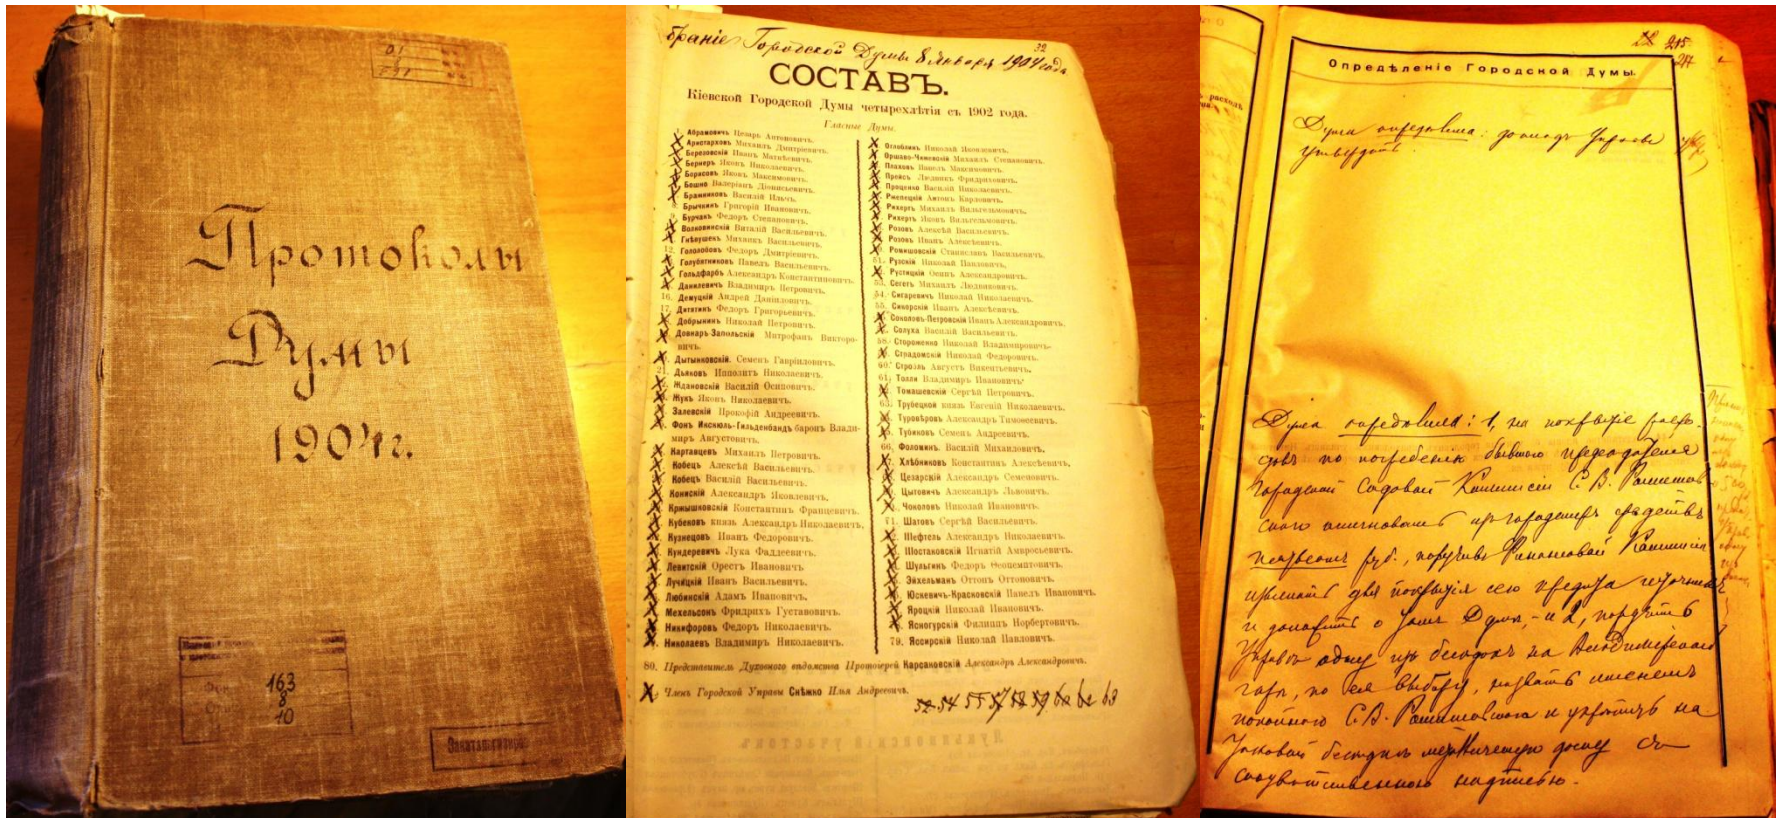 Протоколы
Думы
1904 г.
163
8
10
браніе Городской Думы 8 Января 1904 года
32
СОСТАВЪ.
Кіевской Городской Думы четырехлѣтія съ 1902 года.
Гласные Думы.
Абрамовичъ Цезарь Антоновичъ.
Аристарховъ Михаилъ Дмитріевичъ.
Березовскій Иванъ Матвѣевичъ.
Бернеръ Яковъ Николаевичъ.
Борисовъ Яковъ Максимовичъ.
Башко Валеріанъ Діонисьевичъ.
Бражниковъ Василій Ильичъ.
Брычкинъ Григорій Ивановичъ.
Бурчакъ Федоръ Степановичъ.
Волковинскій Виталій Васильевичъ.
Гнѣвушевъ Михаилъ Васильевичъ.
12. Голозобовъ Федоръ Дмитріевичъ.
Голубятниковъ Павелъ Васильевичъ.
Гольдфарбъ Александръ Константиновичъ.
Данилевичъ Владимиръ Петровичъ.
16. Демуцкій Андрей Даніиловичъ.
17. Дитятинъ Федоръ Григорьевичъ.
Добрынинъ Николай Петровичъ.
Довнаръ-Запольскій Митрофанъ Викторо-
вичъ.
Дытынковскій. Семенъ Гавріиловичъ.
21. Дьяковъ Ипполитъ Николаевичъ.
Ждановскій Василій Осиповичъ.
Жукъ Яковъ Николаевичъ.
Залевскій Прокофій Андреевичъ.
Фонъ Икскюль-Гильденбандъ баронъ Влади-
миръ Августовичъ.
Картавцевъ Михаилъ Петровичъ.
Кобецъ Алексѣй Васильевичъ.
Кобецъ Василій Васильевичъ.
Конискій Александръ Яковлевичъ.
Кржышковскій Константинъ Францевичъ.
Кубековъ князь Александръ Николаевичъ.
Кузнецовъ Иванъ Федоровичъ.
Кундеревичъ Лука Фаддеевичъ.
Левитскій Орестъ Ивановичъ
Лучицкій Иванъ Васильевичъ.
Любинскій Адамъ Ивановичъ.
Мехельсонъ Фридрихъ Густавовичъ.
Никифоровъ Федоръ Николаевичъ.
Николаевъ Владимиръ Николаевичъ.
Оглоблинъ Николай Яковлевичъ.
Оршаво-Чижевскій Михаилъ Степановичъ.
Плаховъ Павелъ Максимовичъ.
Прейсъ Людвикъ Фридриховичъ.
Проценко Василій Николаевичъ.
Ржепецкій Антонъ Карловичъ.
Рихертъ Михаилъ Вильгельмовичъ.
Рихертъ Яковъ Вильгельмовичъ.
Розовъ Алексѣй Васильевичъ.
Розовъ Иванъ Алексѣевичъ.
Ромишовскій Станиславъ Васильевичъ.
51. Рузскій Николай Павловичъ.
Рустицкій Осипъ Александровичъ.
53. Сегетъ Михаилъ Людвиковичъ.
54. Сигаревичъ Николай Николаевичъ.
55. Сикорскій Иванъ Алексѣевичъ.
Соколовъ-Петровскій Иванъ Александровичъ.
Солуха Василій Васильевичъ.
58. Стороженко Николай Владимировичъ.
Страдомскій Николай Федоровичъ.
60. Строэль Августъ Викентьевичъ.
61. Толли Владимиръ Ивановичъ.
Томашевскій Сергѣй Петровичъ.
63. Трубецкой князь Евгеній Николаевичъ.
Туровѣровъ Александръ Тимофеевичъ.
Тубиковъ Семенъ Андреевичъ.
66. Фоломинъ Василій Михаиловичъ.
Хлѣбниковъ Константинъ Алексѣевичъ.
Цезарскій Александръ Семеновичъ.
Цытовичъ Александръ Львовичъ.
Чоколовъ Николай Ивановичъ.
71. Шатовъ Сергѣй Васильевичъ.
Шефтель Александръ Николаевичъ.
Шостаковскій Игнатій Амвросьевичъ.
Шульгинъ Федоръ Феопемптовичъ.
Эйхельманъ Оттонъ Оттоновичъ.
Юскевичъ-Красковскій Павелъ Ивановичъ.
Яроцкій Николай Ивановичъ.
Ясногурскій Филиппъ Норбертовичъ.
79. Яссирскій Николай Павловичъ.
80. Представитель Духовнаго вѣдомства Протоіерей Корсаковскій Александръ Александровичъ.
Членъ Городской Управы Снѣжко Илья Андреевичъ.
215
Опредѣленіе Городской Думы.
Дума опредѣлила: докладъ Управы
утвердить.
Дума опредѣлила: 1, на покрытіе расхо-
довъ по погребенію бывшаго предсѣдателя
городской Садовой Коммисіи С. В.
ассигновать изъ городскихъ средствъ
руб., поручивъ Финансовой Коммисіи
для покрытія сего кредита источникъ
и доложить о томъ Думѣ, и 2, поручить
Управѣ одну изъ бесѣдокъ на Владимірской
горѣ, по ея выбору, назвать именемъ
покойнаго С. В. и укрѣпить на
таковой бесѣдкѣ металическую доску съ
соотвѣтственною надписью.